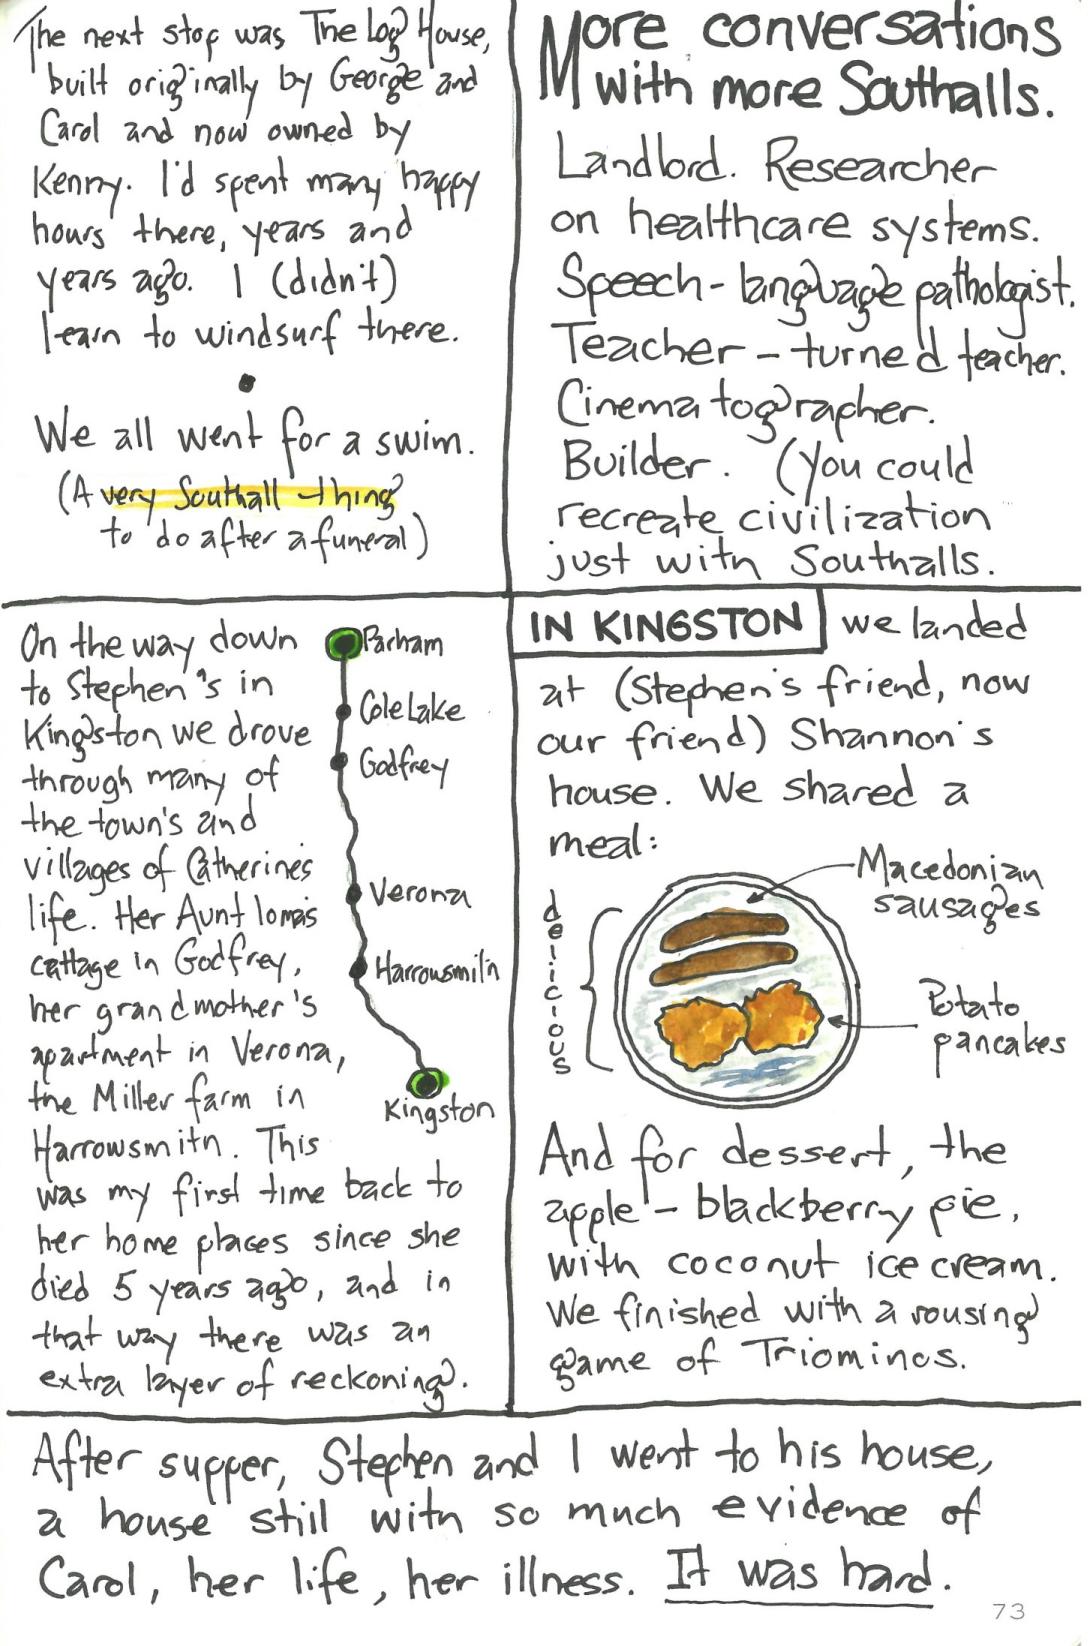 The next stop was The Log House,
built originally by George and
Carol and now owned by
Kenny. I'd spent many happy
hours there, years and
years ago. I (didn't)
learn to windsurf there.
We all went for a swim.
(A very Southall thing
to do after a funeral)
More conversations
with more Southalls.
Landlord. Researcher
on healthcare systems.
Speech-language pathologist.
Teacher-turned teacher.
Cinematographer.
Builder. (You could
recreate civilization
just with Southalls.
On the way down
to Stephen's in
Kingston we drove
through many of
the town's and
villages of Catherine's
life. Her Aunt Ioma's
cottage in Godfrey,
her grandmother's
apartment in Verona,
the Miller farm in
Harrowsmith. This
was my first time back to
her home places since she
died 5 years ago, and in
that way there was an
extra layer of reckoning.
Parham
Cole Lake
Godfrey
Verona
Harrowsmith
Kingston
IN KINGSTON we landed
at (Stephen's friend, now
our friend) Shannon's
house. We shared a
meal:
delicious
Macedonian
sausages
Potato
pancakes
And for dessert, the
apple-blackberry pie,
with coconut ice cream.
We finished with a rousing
game of Triominos.
After supper, Stephen and I went to his house,
a house still with so much evidence of
Carol, her life, her illness. It was hard.
73